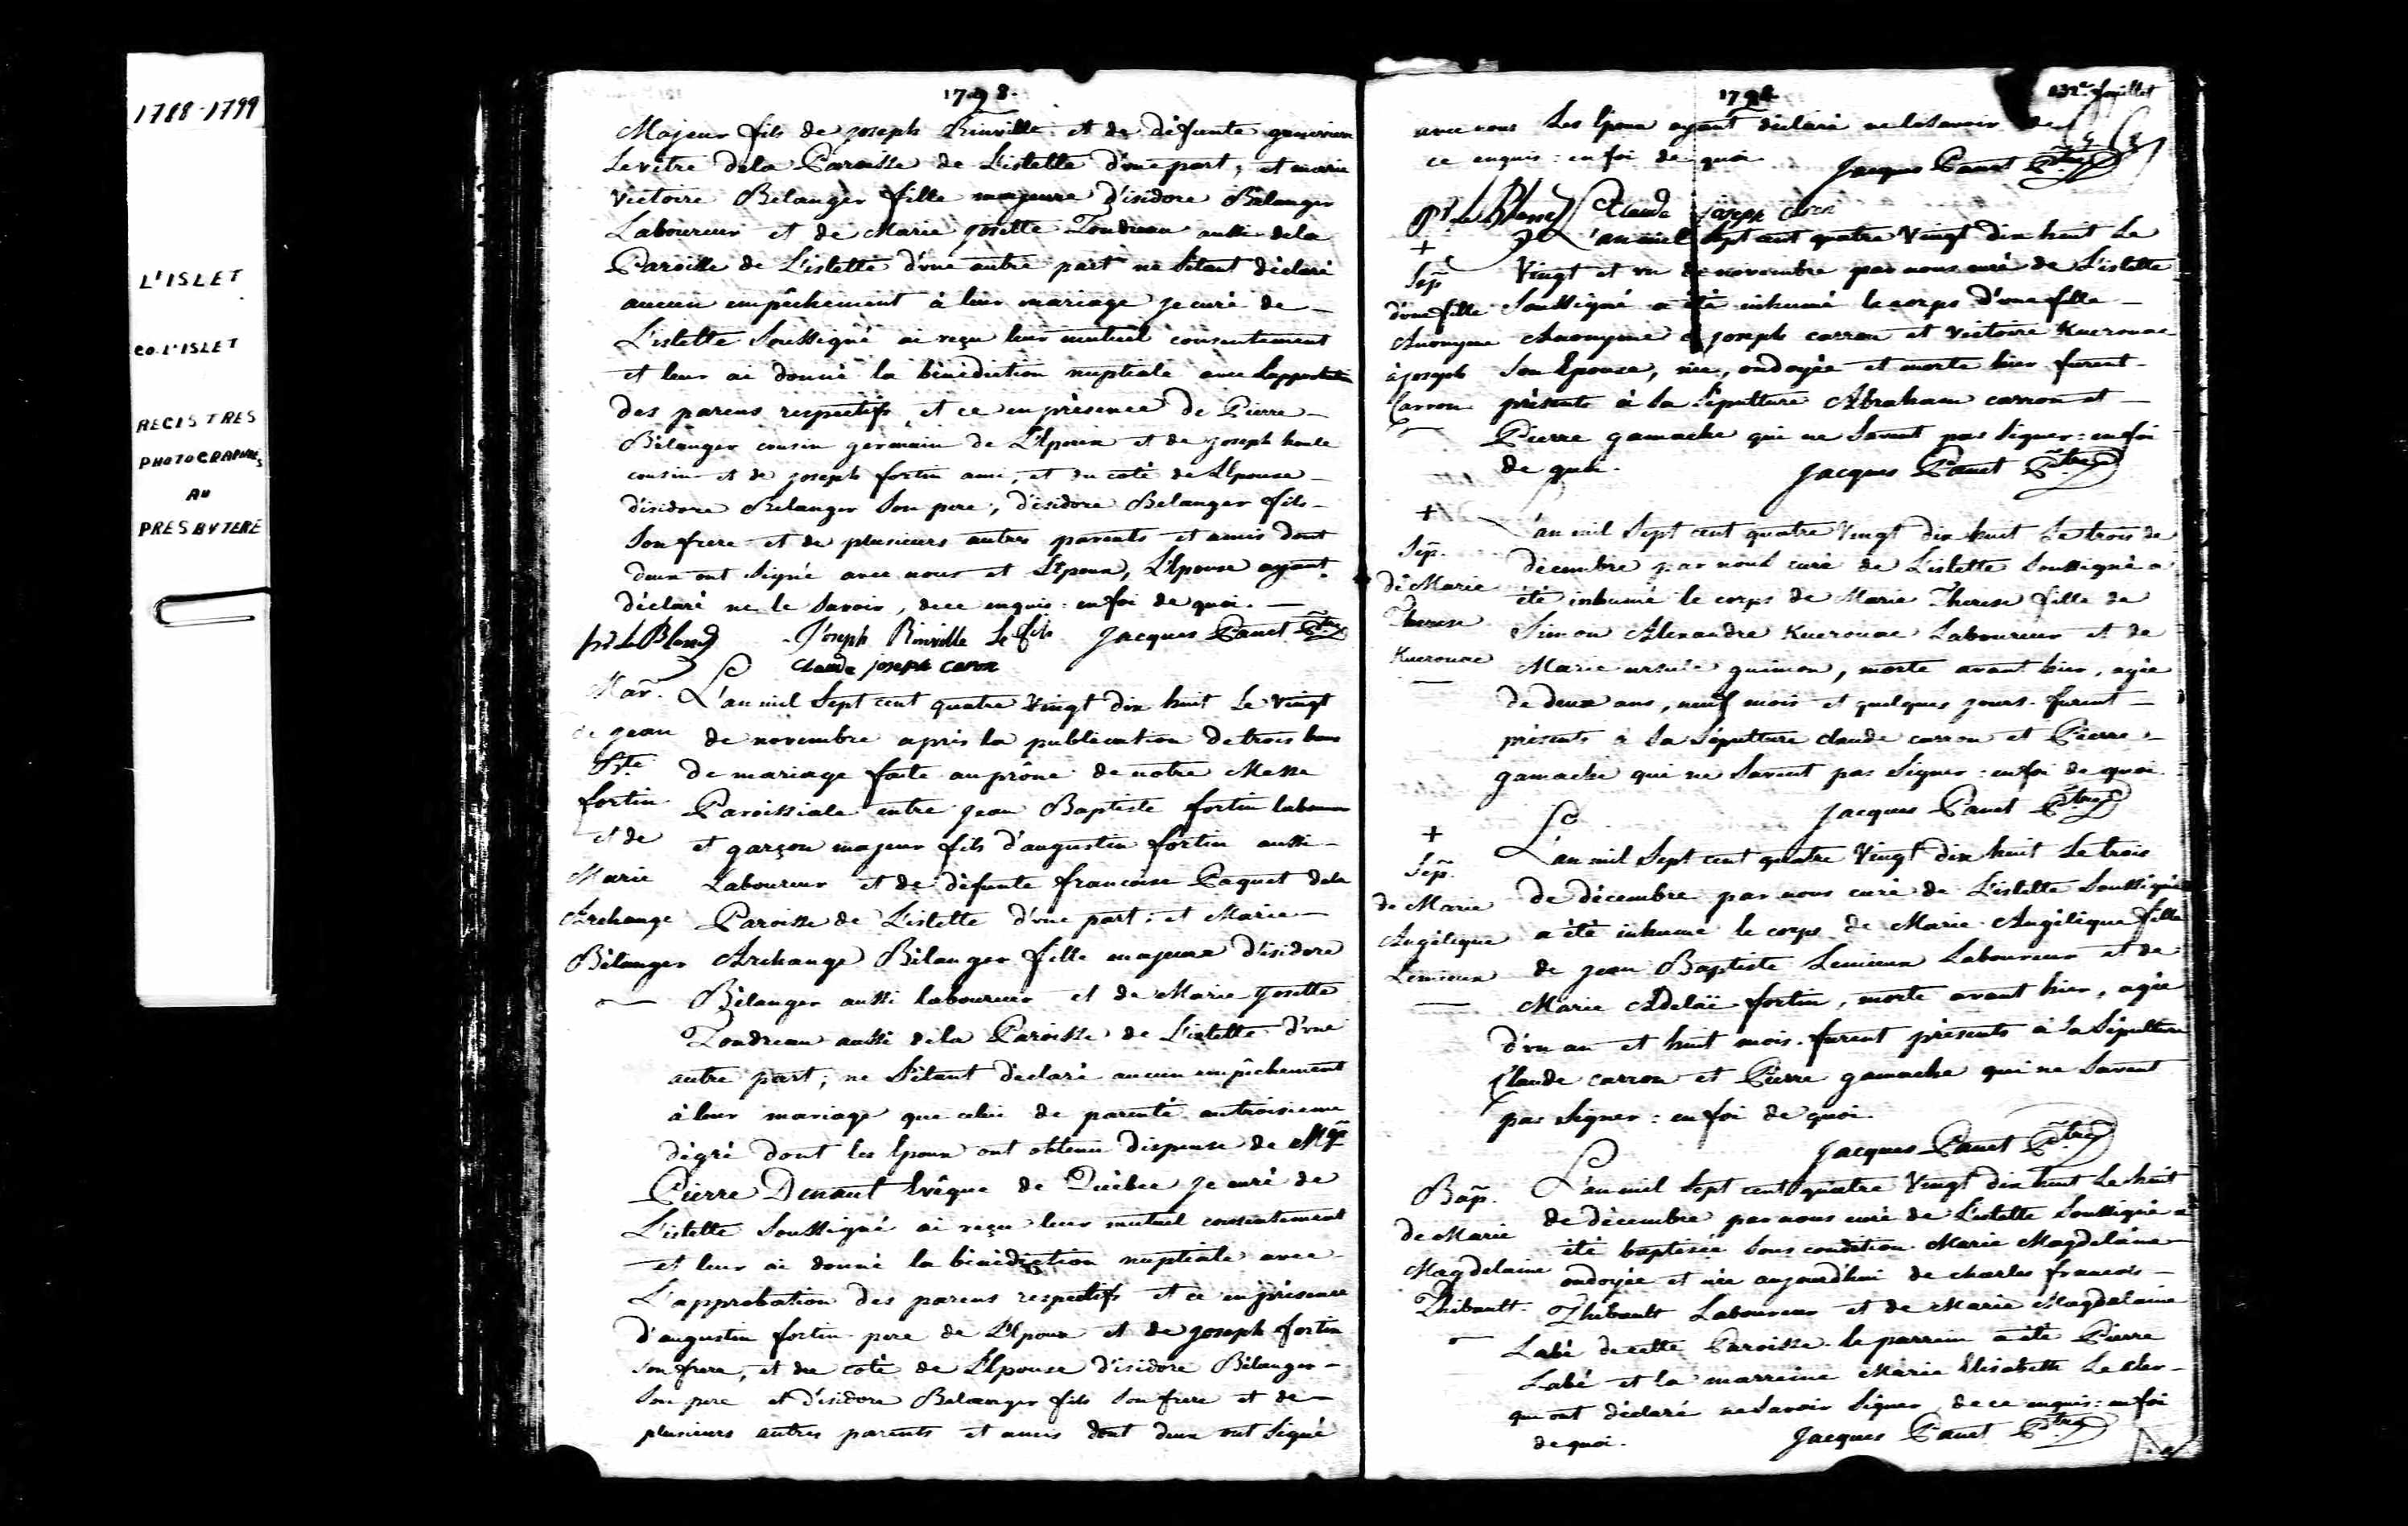 1788-1799
L'ISLET
CO. L'ISLET
REGISTRES
PHOTOGRAPHIÉS
AU
PRESBYTERE
1798.
Majeur fils de joseph Rinville et de défunte genevieve
Levêtre dela Paroisse de L'islette d'une part, et marie
Victoire Bélanger fille majeure d'isidore Bélanger
Laboureur et de Marie josette Tondreau aussi dela
Paroisse de L'islette d'une autre part ne S'étant déclaré
aucun empêchement à leur mariage je curé de
L'islette Soussigné ai reçu leur mutuel consentement
et leur ai donné la bénédiction nuptiale avec
des parens respectifs et ce en présence de Pierre
Bélanger cousin germain de L'Epoux et de joseph
cousin et de joseph fortin ami, et du coté de L'Epouse
d'isidore Bélanger Son pere, d'isidore Belanger fils
Son frere et de plusieurs autres parents et amis dont
deux ont Signé avec nous et L'Epoux, L'Epouse ayant
déclaré ne le Savoir, de ce enquis : en foi de quoi.
prs LeBlond Joseph Rinville Le fils Jacques Panet Ptre
Claude joseph caron
Mar. L'an mil Sept cent quatre Vingt dix huit Le Vingt
de jean de novembre après la publication de trois bans
Bte de mariage faite au prône de notre Messe
fortin Paroissiale entre jean Baptiste fortin
et de et garçon majeur fils d'augustin fortin aussi
Marie Laboureur et de défunte francoise Paquet dela
Archange Paroisse de L'islette d'une part : et Marie
Bélanger Archange Bélanger fille majeure d'isidore
Bélanger aussi laboureur et de Marie josette
Tondreau aussi dela Paroisse de L'islette d'une
autre part ; ne S'étant déclaré aucun empêchement
à leur mariage que celui de parenté au troisieme
dégré dont les Epoux ont obtenu dispense de Mgr
Pierre Denaut Evêque de Québec je curé de
L'islette Soussigné ai reçu leur mutuel consentement
et leur ai donné la bénédiction nuptiale avec
L'approbation des parens respectifs et ce en présence
d'augustin fortin pere de L'Epoux et de joseph fortin
son frere, et du coté de L'Epouse d'isidore Bélanger
Son pere et d'isidore Belanger fils Son frere et de
plusieurs autres parents et amis dont deux ont Signé
1798. 132e. feuillet
avec nous Les Epoux ayant déclaré ne le Savoir de
ce enquis : en foi de quoi Jacques Panet Ptre
prs LeBlond Claude joseph caron
+ L'an mil Sept cent quatre Vingt dix huit Le
Sep. Vingt et un de novembre par nous curé de L'islette
d'une fille Soussigné a été inhumé le corps d'une fille
Anonyme Anonyme à joseph carron et Victoire Kuerouac
à joseph Son Epouse, née, ondoyée et morte hier. furent
Carron présents à la Sépulture Abraham carron et
Pierre gamache qui ne Savent pas Signer : en foi
de quoi. Jacques Panet Ptre
+ L'an mil Sept cent quatre Vingt dix huit Le trois de
Sep. décembre par nous curé de L'islette Soussigné a
de Marie été inhumé le corps de Marie Therese fille de
Therese Simon Alexandre Kuerouac Laboureur et de
Kuerouac Marie ursule guimon, morte avant hier, agée
de deux ans, neuf mois et quelques jours. furent
présents à la Sépulture claude carron et Pierre
gamache qui ne Savent pas Signer : en foi de quoi.
Jacques Panet Ptre
+ L'an mil Sept cent quatre Vingt dix huit Le trois
Sep. de décembre par nous curé de L'islette Soussigné
de Marie a été inhumé le corps de Marie Angélique fille
Angélique de jean Baptiste Lemieux Laboureur et de
Lemieux Marie Adelaï fortin, morte avant hier, agée
d'un an et huit mois. furent présents à la Sépulture
Claude carron et Pierre gamache qui ne Savent
pas Signer : en foi de quoi
Jacques Panet Ptre
Bap. L'an mil Sept cent quatre Vingt dix huit Le huit
de Marie de décembre par nous curé de L'islette Soussigné a
Magdelaine été baptisée Sous condition Marie Magdelaine
Thibault. ondoyée et née aujourdhui de charles francois
Thibault Laboureur et de Marie Magdelaine
Labé de cette Paroisse. le parrein a été Pierre
Labé et la marreine Marie Elisabette Le cler
qui ont déclaré ne Savoir Signer, de ce enquis : en foi
de quoi. Jacques Panet Ptre